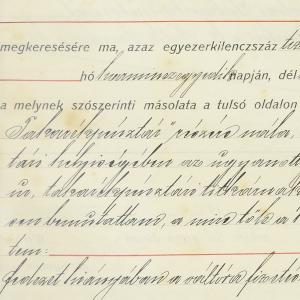 megkeresésére ma, azaz egyezerkilenczszáz tiz
hó harminczegyedik napján, dél
a melynek szószerinti másolata a tulsó oldalon
Takarékpénztár" részére nála,
tári helyiségében az ugyanott
ur, takarékpénztári titkárnak
sen bemutattam, a mire tőle a
tem:
fedezet hiányában a váltóra fizetés